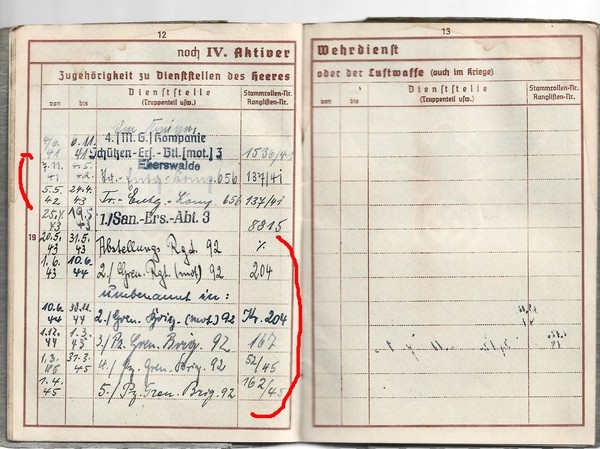 12
noch IV. Aktiver
Zugehörigkeit zu Dienststellen des Heeres
von
bis
Dienststelle
(Truppenteil usw.)
Stammrollen-Nr.
Ranglisten-Nr.
6.11.
41
4.[M.G.] Kompanie
Schützen-Ers.-Btl.[mot.] 3
Eberswalde
1536/41
7.11.
41
4.5.
42
656
137/41
5.5.
42
24.4.
43
Tr.-Entg.-Komp. 656
137/41
25.4.
43
19.5.
43
1./San.-Ers.-Abt. 3
8815
19
20.5.
43
31.5.
43
Abstellungs Rgt. 92
%
1.6.
43
10.6.
44
2./Gren. Rgt (mot) 92
204
umbenannt in:
10.6.
44
30.11.
44
2./Gren. Brig. (mot.) 92
Kr. 204
1.12.
44
1.3.
45
3./Pz. Gren. Brig. 92
167
1.3.
45
31.3.
45
4./Pz. Gren. Brig. 92
52/45
1.4.
45
5./Pz. Gren. Brig. 92
162/45
13
Wehrdienst
oder der Luftwaffe (auch im Kriege)
von
bis
Dienststelle
(Truppenteil usw.)
Stammrollen-Nr.
Ranglisten-Nr.